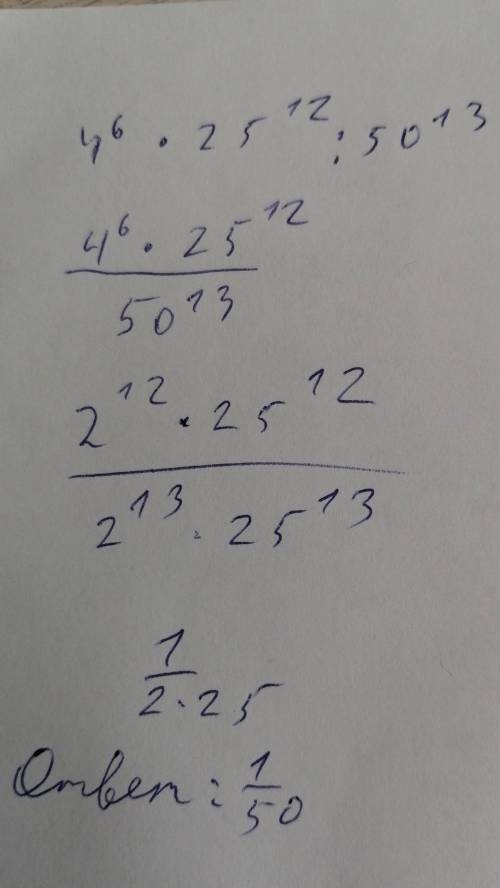 4⁶ · 25¹² : 50¹³
4⁶ · 25¹²
50¹³
2¹² · 25¹²
2¹³ · 25¹³
1
2 · 25
Ответ: 1/50